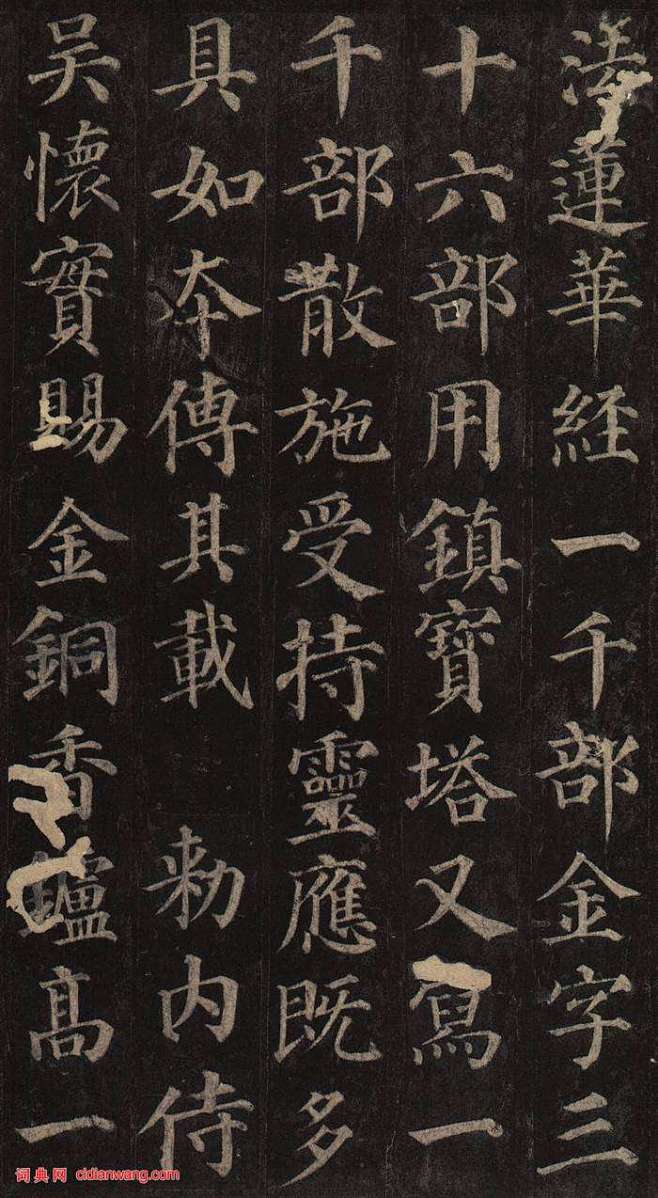 法蓮華経一千部金字三
十六部用鎮寶塔又寫一
千部散施受持靈應既多
具如夲傳其載 勑内侍
吳懷實賜金銅香鑪高一
词典网 cidianwang.com